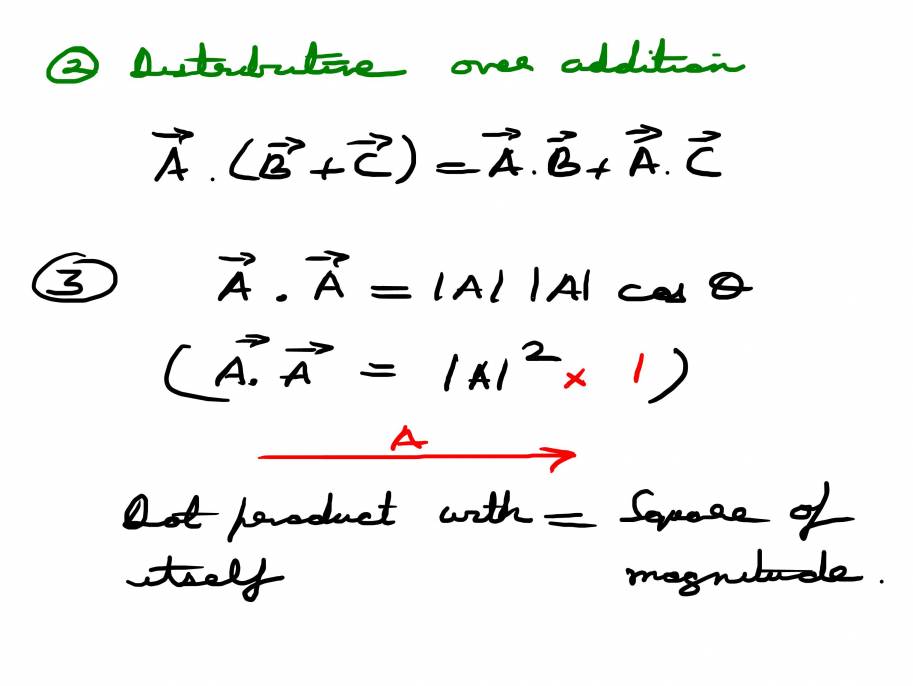 ② Distributive over addition
A⃗ . (B⃗ + C⃗) = A⃗ . B⃗ + A⃗ . C⃗
③ A⃗ . A⃗ = |A| |A| cos θ
(A⃗ . A⃗ = |A|² × 1)
A
Dot product with = Square of
itself magnitude.